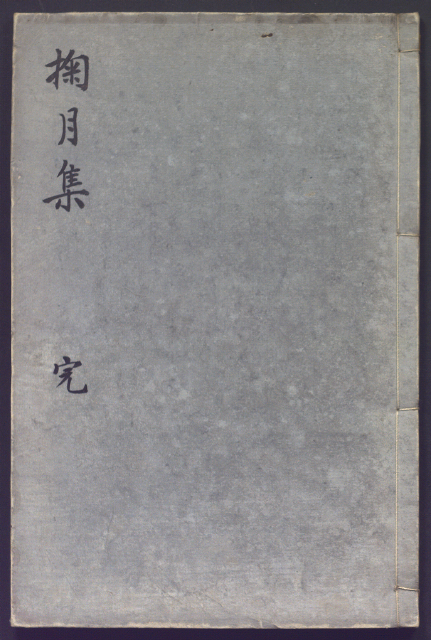 掬月集 完